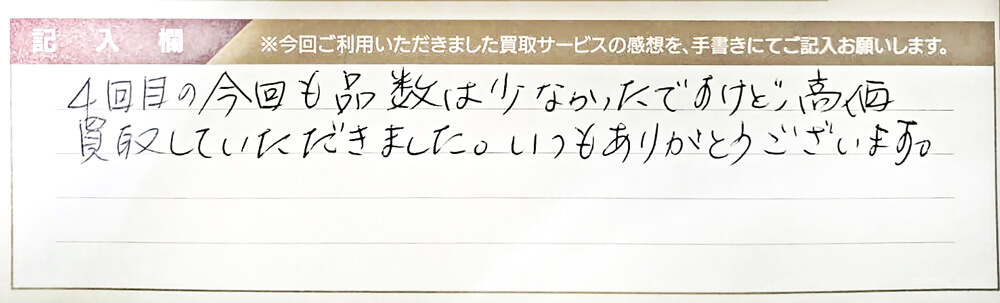 記入欄
※今回ご利用いただきました買取サービスの感想を、手書きにてご記入お願いします。
4回目の今回も品数は少なかったですけど、高価
買取していただきました。いつもありがとうございます。